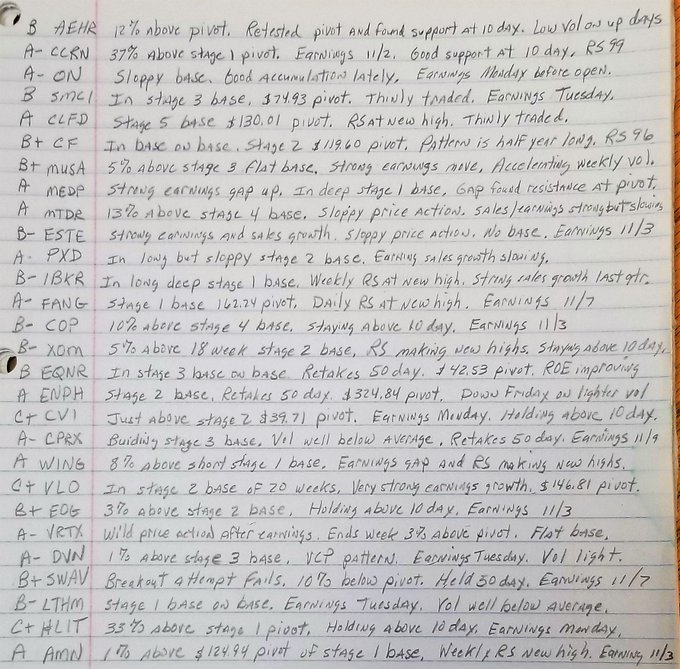 B AEHR 12% Above pivot. Retested pivot and found support at 10 day. Low vol on up days
A- CCRN 37% Above stage 1 pivot. Earnings 11/2. Good support at 10 day, RS 99
A- ON Sloppy base. Good accumulation lately. Earnings Monday before open.
B SMCI In stage 3 base, $74.93 pivot. Thinly traded. Earnings Tuesday.
A CLFD Stage 5 base $130.01 pivot. RS at new high. Thinly traded.
B+ CF In base on base. Stage 2 $119.60 pivot. Pattern is half year long. RS 96
B+ MUSA 5% above stage 3 flat base. Strong earnings move, Accelerating weekly vol.
A MEDP Strong earnings gap up. In deep stage 1 base, Gap found resistance at pivot.
A MTDR 13% above stage 4 base. Sloppy price action. Sales/earnings strong but slowing
B- ESTE Strong earnings and sales growth. Sloppy price action. No base. Earnings 11/3
A- PXD In long but sloppy stage 2 base. Earning sales growth slowing.
B- IBKR In long deep stage 1 base. Weekly RS at new high. Strong sales growth last qtr.
A- FANG Stage 1 base 162.24 pivot. Daily RS at new high. Earnings 11/7
B- COP 10% above stage 4 base. Staying above 10 day. Earnings 11/3
B- XOM 5% above 18 week stage 2 base, RS making new highs. Staying above 10 day.
B EQNR In stage 3 base on base. Retakes 50 day. $42.53 pivot. ROE improving
A ENPH Stage 2 base, Retakes 50 day. $324.84 pivot. Down Friday on lighter vol
C+ CVI Just above stage 2 $39.71 pivot. Earnings Monday. Holding above 10 day.
A- CPRX Buiding stage 3 base. Vol well below average. Retakes 50 day. Earnings 11/9
A WING 8% above short stage 1 base. Earnings gap and RS making new highs.
C+ VLO In stage 2 base of 20 weeks, Very strong earnings growth. $146.81 pivot.
B+ EOG 3% above stage 2 base, Holding above 10 day. Earnings 11/3
A- VRTX Wild price action after earnings. Ends week 3% above pivot. Flat base.
A- DVN 1% above stage 3 base. VCP pattern. Earnings Tuesday. Vol light.
B+ SWAV Breakout attempt fails. 10% below pivot. Held 50 day. Earnings 11/7
B- LTHM Stage 1 base on base. Earnings Tuesday. Vol well below average.
C+ HLIT 33% above stage 1 pivot. Holding above 10 day. Earnings Monday.
A AMN 1% above $124.94 pivot of stage 1 base, Weekly RS new high. Earning 11/3